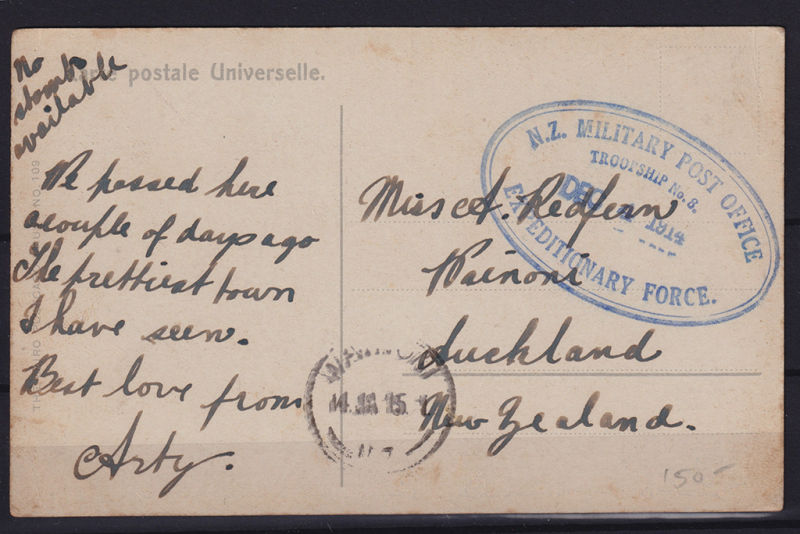 No
stamps
available
Carte postale Universelle.
We passed here
a couple of days ago
The prettiest town
I have seen.
Best love from
Arty.
N.Z. MILITARY POST OFFICE
TROOPSHIP No. 8.
DEC 1914
EXPEDITIONARY FORCE.
Miss A. Redfern
Wainoni
Auckland
New Zealand.
14 JA 15
NO. 109
150-